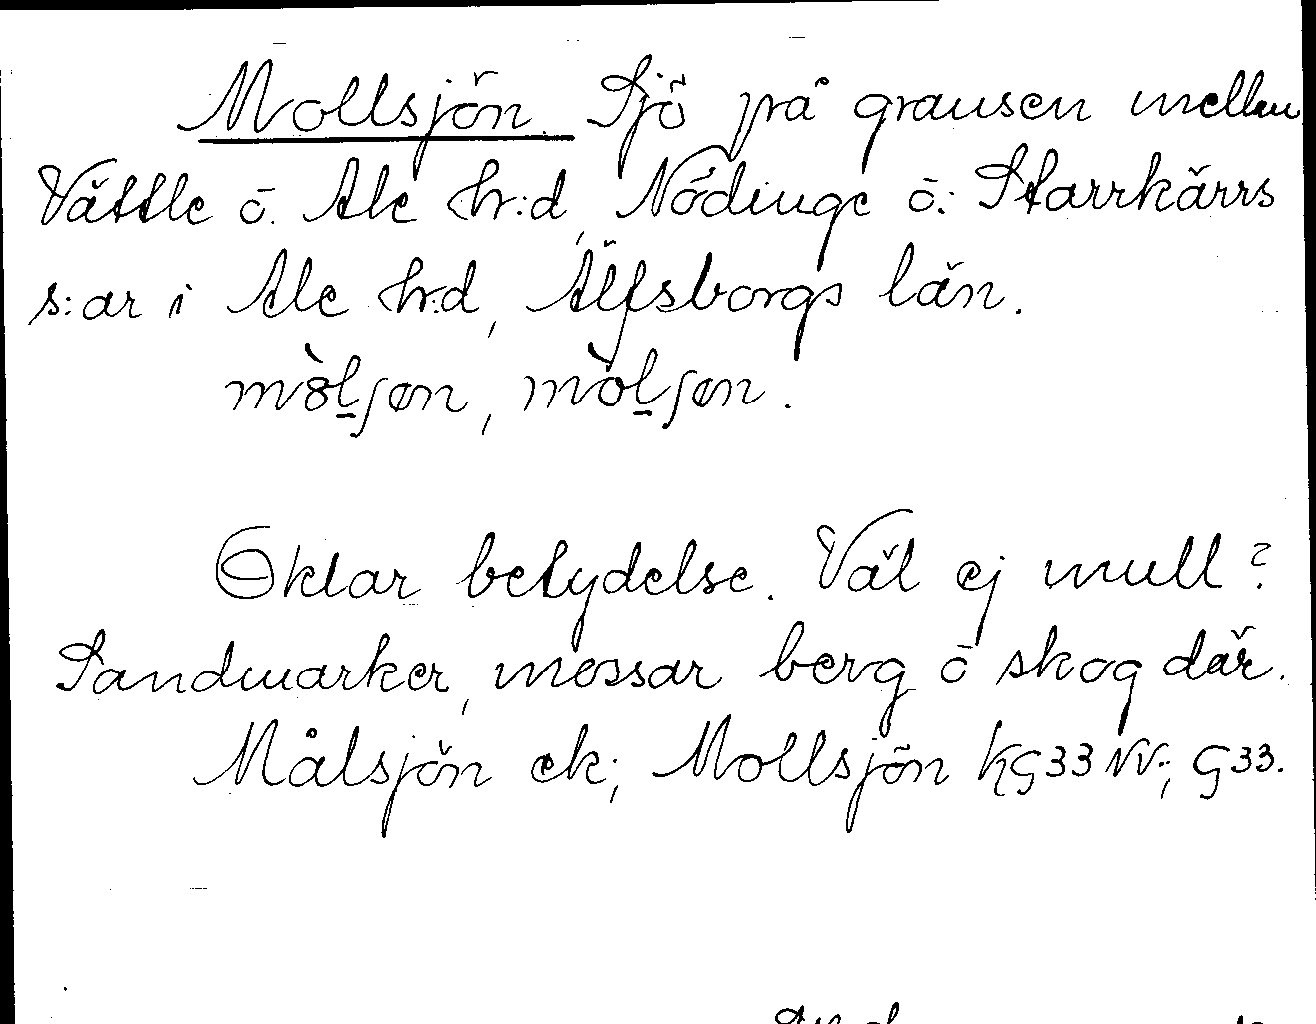 Mollsjön. Sjö på gränsen mellan
Vättle o. Ale h:d, Nödinge o. Starrkärrs
s:ar i Ale h:d, Älfsborgs län.
mòl̠ʃøn, mòl̠ʃøn.
Oklar betydelse. Väl ej mull?
Sandmarker, mossar berg o skog där.
Målsjön ek; Mollsjön KG33NV; G33.